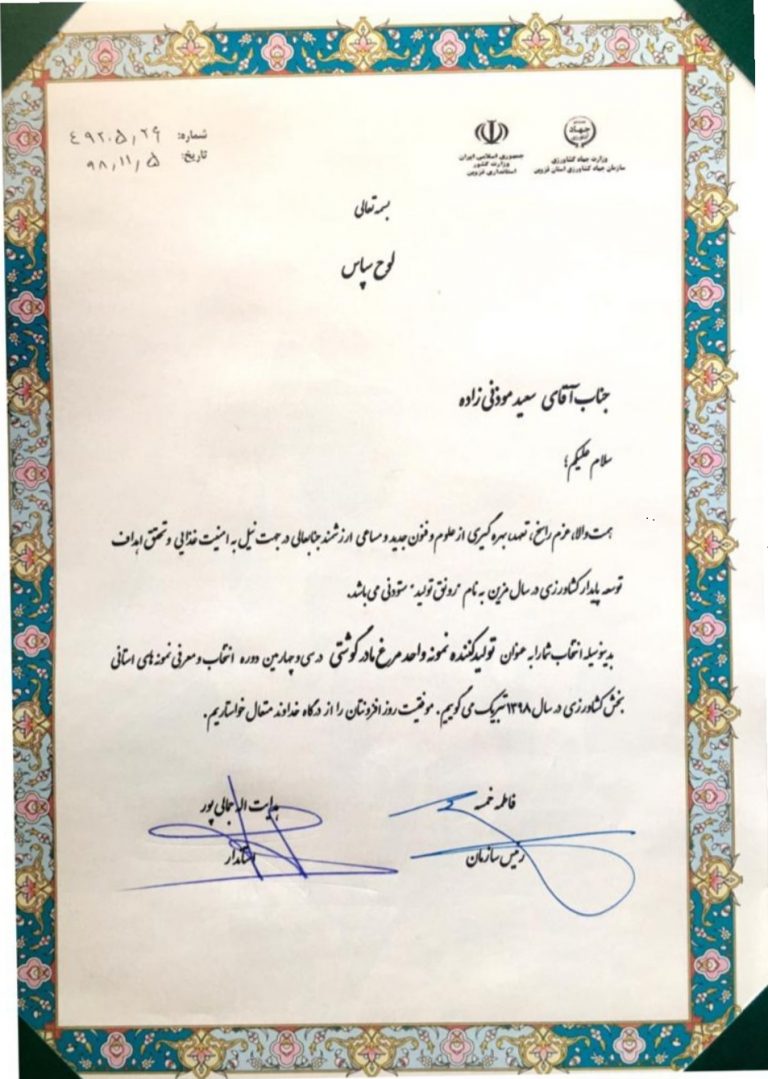 شماره: ۴۹۲۰۵٫۲۶
تاریخ: ۹۸٫۱۱٫۵
جهاد
وزارت جهاد کشاورزی
سازمان جهاد کشاورزی استان قزوین
جمهوری اسلامی ایران
وزارت کشور
استانداری قزوین
بسمه تعالی
لوح سپاس
جناب آقای سعید موذنی زاده
سلام علیکم؛
همت والا، عزم راسخ، تعهد، بهره گیری از علوم و فنون جدید و مساعی ارزشمند جنابعالی در جهت نیل به امنیت غذایی و تحقق اهداف
توسعه پایدار کشاورزی در سال مزین به نام "رونق تولید" ستودنی می باشد.
بدینوسیله انتخاب شما را به عنوان تولیدکننده نمونه واحد مرغ مادر گوشتی در سی و چهارمین دوره انتخاب و معرفی نمونه های استانی
بخش کشاورزی در سال ۱۳۹۸ تبریک می گوییم. موفقیت روز افزونتان را از درگاه خداوند متعال خواستاریم.
فاطمه خمسه
رئیس سازمان
هدایت اله جمالی پور
استاندار